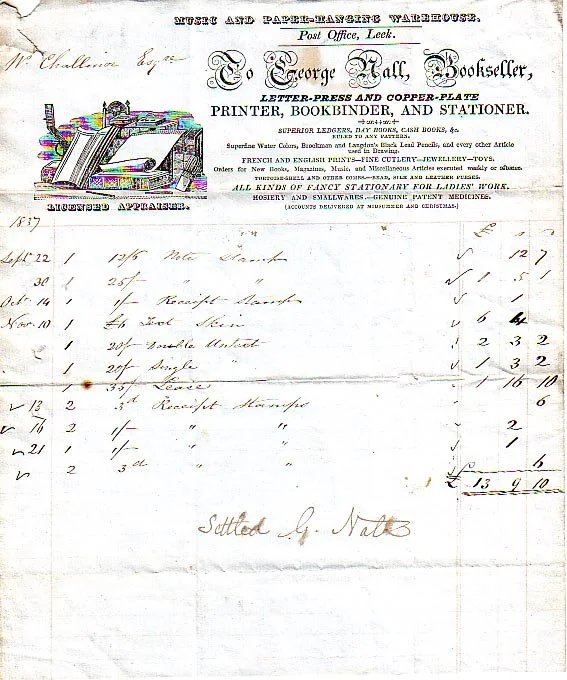 MUSIC AND PAPER-HANGING WAREHOUSE.
Post Office, Leek.
Wm Challinor Esqre
To George Nall, Bookseller,
LETTER-PRESS AND COPPER-PLATE
PRINTER, BOOKBINDER, AND STATIONER.
SUPERIOR LEDGERS, DAY BOOKS, CASH BOOKS, &c.
RULED TO ANY PATTERN.
Superfine Water Colors, Brookman and Langdon's Black Lead Pencils, and every other Article
used in Drawing.
FRENCH AND ENGLISH PRINTS—FINE CUTLERY—JEWELLERY—TOYS.
Orders for New Books, Magazines, Music, and Miscellaneous Articles executed weekly or oftener.
TORTOISE-SHELL AND OTHER COMBS.—BEAD, SILK AND LEATHER PURSES.
ALL KINDS OF FANCY STATIONARY FOR LADIES' WORK.
HOSIERY AND SMALLWARES.—GENUINE PATENT MEDICINES.
(ACCOUNTS DELIVERED AT MIDSUMMER AND CHRISTMAS.)
LICENSED APPRAISER.
1837
£ s d
Sept 22 1 12/6 Note Stamp 12 7
30 1 25/- " " 1 5 1
Oct 14 1 1/- Receipt Stamp 1
Nov 10 1 £6 Skin 6 4
1 20/- Double 2 3 2
1 20/- Single " 1 3 2
1 35/- Lease 1 16 10
13 2 3d Receipt Stamps 6
16 2 1/- " " 2
21 1 1/- " " 1
2 3d " " 6
£ 13 9 10
Settled G. Nall